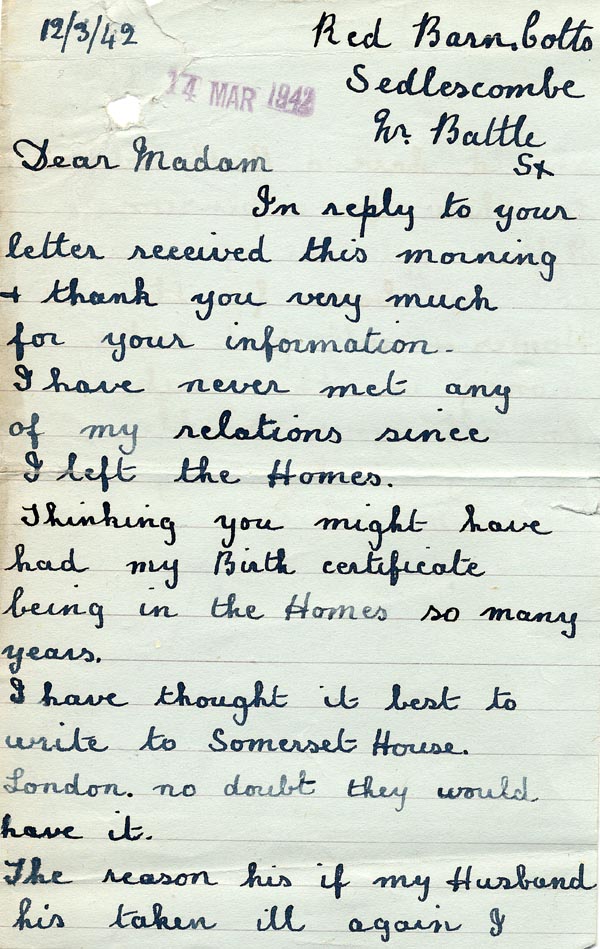 12/3/42
Red Barn. Cotts
14 MAR 1942
Sedlescombe
Nr. Battle
Sx
Dear Madam
In reply to your
letter received this morning
+ thank you very much
for your information.
I have never met any
of my relations since
I left the Homes.
Thinking you might have
had my Birth certificate
being in the Homes so many
years.
I have thought it best to
write to Somerset House.
London. no doubt they would
have it.
The reason his if my Husband
his taken ill again I